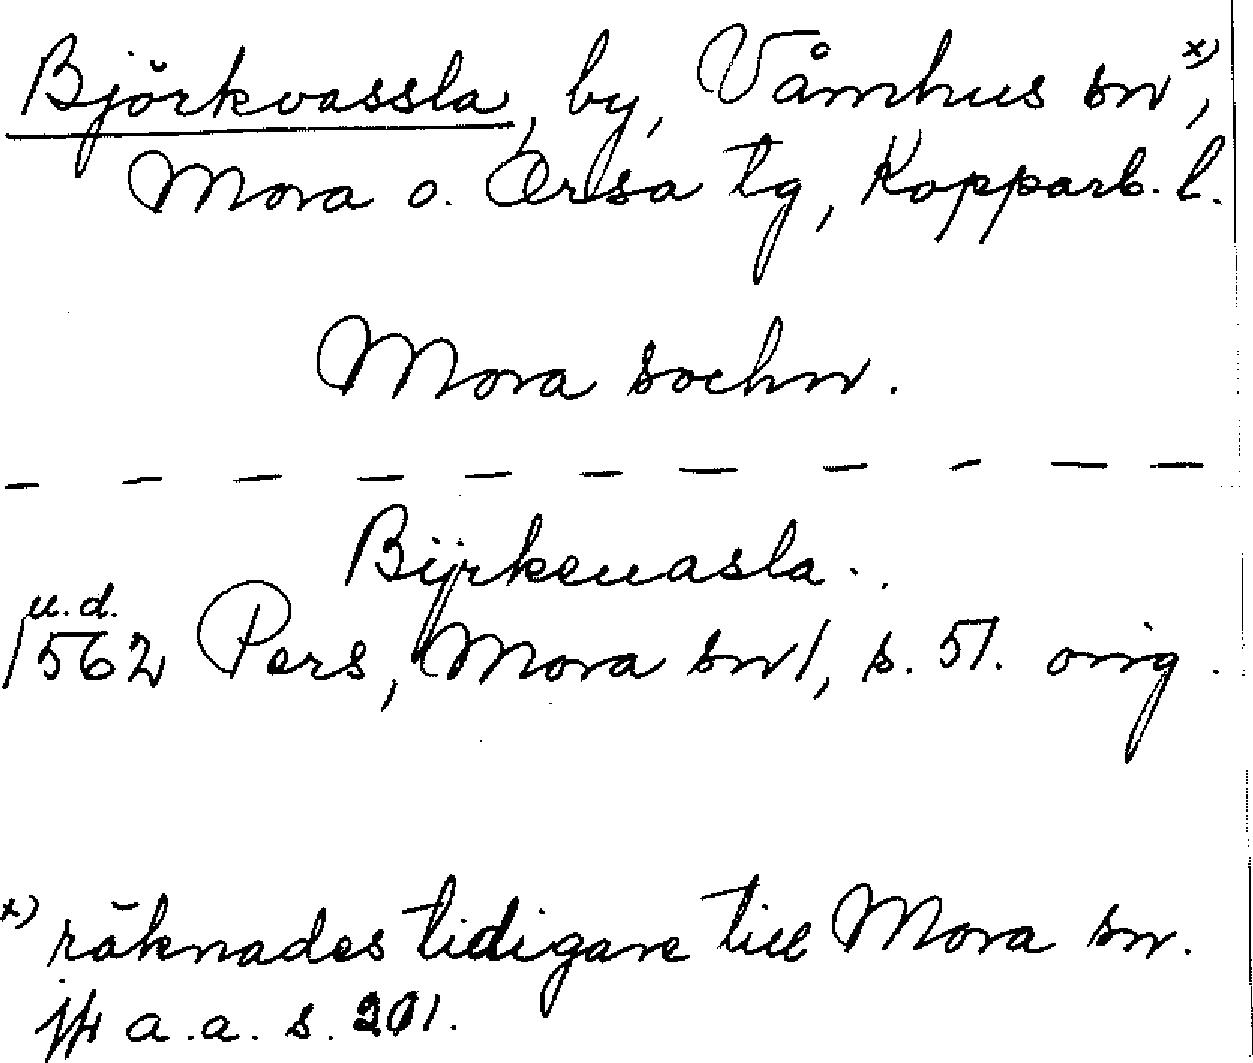 Björkvassla, by, Våmhus sn x),
Mora o. Orsa tg, Kopparb. l.
Mora sochn.
— — — — — — — — — —
Bijrkeuasla..
u.d.
1562 Pers, Mora sn 1, s. 51. orig.
x) räknades tidigare till Mora sn.
jfr a.a. s. 201.